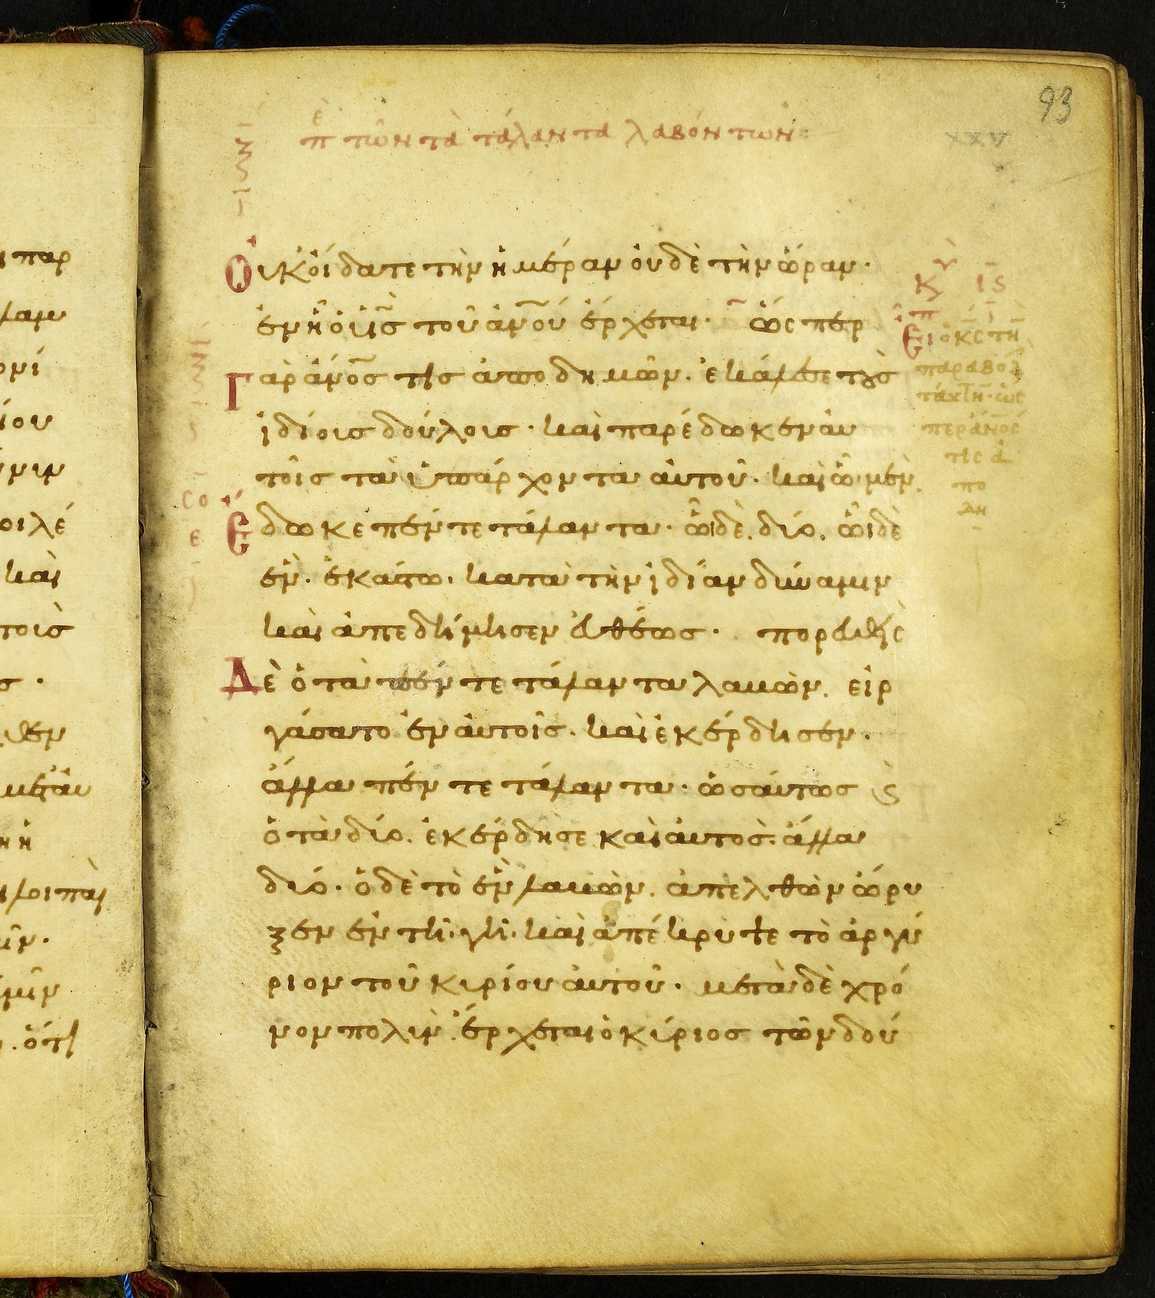 93
XXV
π̀ τῶν τὰ τάλαντα λαβόντων:
Οὐκ οἴδατε τὴν ἡμέραν οὐδὲ τὴν ὥραν·
ἐν ἧ ὁ υἱ̅ς τοῦ ἀν̅ου ἔρχεται· ὥσπερ
Γὰρ ἄν̅ος τις ἀποδημῶν. ἐκάλεσε τοὺς
ἰδίοις δούλοις· καὶ παρέδωκεν αὐ
τοῖς τὰ ὑπάρχοντα αὐτοῦ· καὶ ὧ μὲν
Ἔδωκε πέντε τάλαντα· ὧ δὲ. δύο. ὧ δὲ
ἕν· ἑκάστω. κατὰ τὴν ἰδίαν δύναμιν
καὶ ἀπεδήμησεν εὐθέως· πορευθεὶς
Δὲ ὁ τὰ πέντε τάλαντα λαβὼν. εἰρ
γάσατο ἐν αὐτοῖς· καὶ ἐκέρδησεν.
ἄλλα πέντε τάλαντα· ὡσαύτως ϗ
ὁ τὰ δύο. ἐκέρδησε καὶ αὐτὸς ἄλλα
δύο· ὁ δὲ τὸ ἓν λαβὼν. ἀπελθὼν ὤρυ
ξεν ἐν τῆ γῆ· καὶ ἀπέκρυψε τὸ ἀργύ
ριον τοῦ κυρίου αὐτοῦ· μετὰ δὲ χρό
νον πολὺν ἔρχεται ὁ κύριος τῶν δού
Κυ ιϛ
Εἶπ ὁ κς τὴ
παραβολ
ταύτην· ὡς
περ ἄν̅ος
τις ἀ
πο
δη